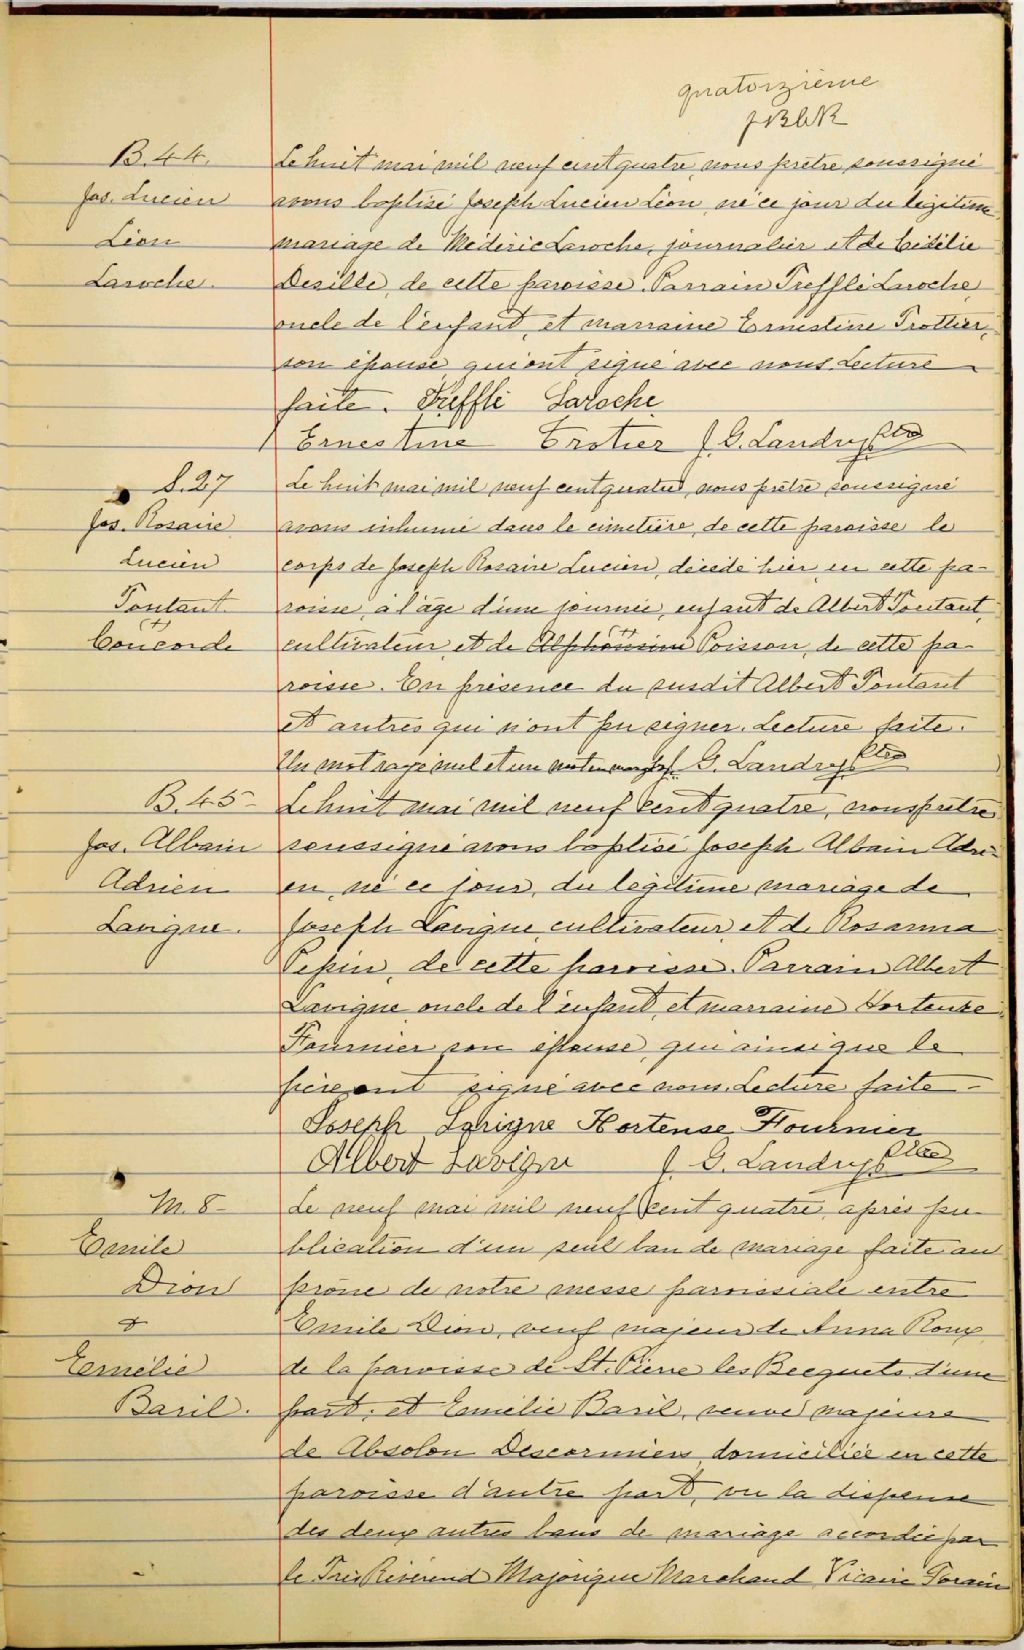 quatorzième
B. 44.
Jos. Lucien
Léon
Laroche.
Le huit mai mil neuf cent quatre, nous prêtre soussigné
avons baptisé Joseph Lucien Léon, né ce jour du légitime
mariage de Médéric Laroche, journalier et de Cédélie
Desille, de cette paroisse. Parrain Trefflé Laroche,
oncle de l'enfant, et marraine Ernestine Trottier,
son épouse, qui ont signé avec nous. Lecture
faite. Trefflé Laroche
Ernestine Trotier J. G. Landry, Ptre
S. 27
Jos. Rosaire
Lucien
Toutant
(+)
Concorde
Le huit mai mil neuf cent quatre, nous prêtre soussigné
avons inhumé dans le cimetière de cette paroisse le
corps de Joseph Rosaire Lucien, décédé hier en cette pa-
roisse, à l'âge d'une journée, enfant de Albert Toutant,
cultivateur, et de Alphonsine (+) Poisson, de cette pa-
roisse. En présence du susdit Albert Toutant
et autres qui n'ont pu signer. Lecture faite.
Un mot rayé nul et un mot en marge J. G. Landry Ptre
B. 45-
Jos. Albain
Adrien
Lavigne.
Le huit mai mil neuf cent quatre, nous prêtre
soussigné avons baptisé Joseph Albain Adri-
en, né ce jour, du légitime mariage de
Joseph Lavigne, cultivateur, et de Rosanna
Pepin, de cette paroisse. Parrain Albert
Lavigne, oncle de l'enfant, et marraine Hortense
Fournier son épouse, qui ainsi que le
père ont signé avec nous. Lecture faite-
Joseph Lavigne Hortense Fournier
Albert Lavigne J. G. Landry, Ptre
M. 8-
Emile
Dion
&
Emélie
Baril.
Le neuf mai mil neuf cent quatre, après pu-
blication d'un seul ban de mariage faite au
prône de notre messe paroissiale entre
Emile Dion, veuf majeur de Anna Roux
de la paroisse de St. Pierre les Becquets d'une
part, et Emélie Baril, veuve majeure
de Absolon Descormiers, domiciliée en cette
paroisse d'autre part, vu la dispense
des deux autres bans de mariage accordée par
le Très Révérend Majorique Marchand, Vicaire Forain